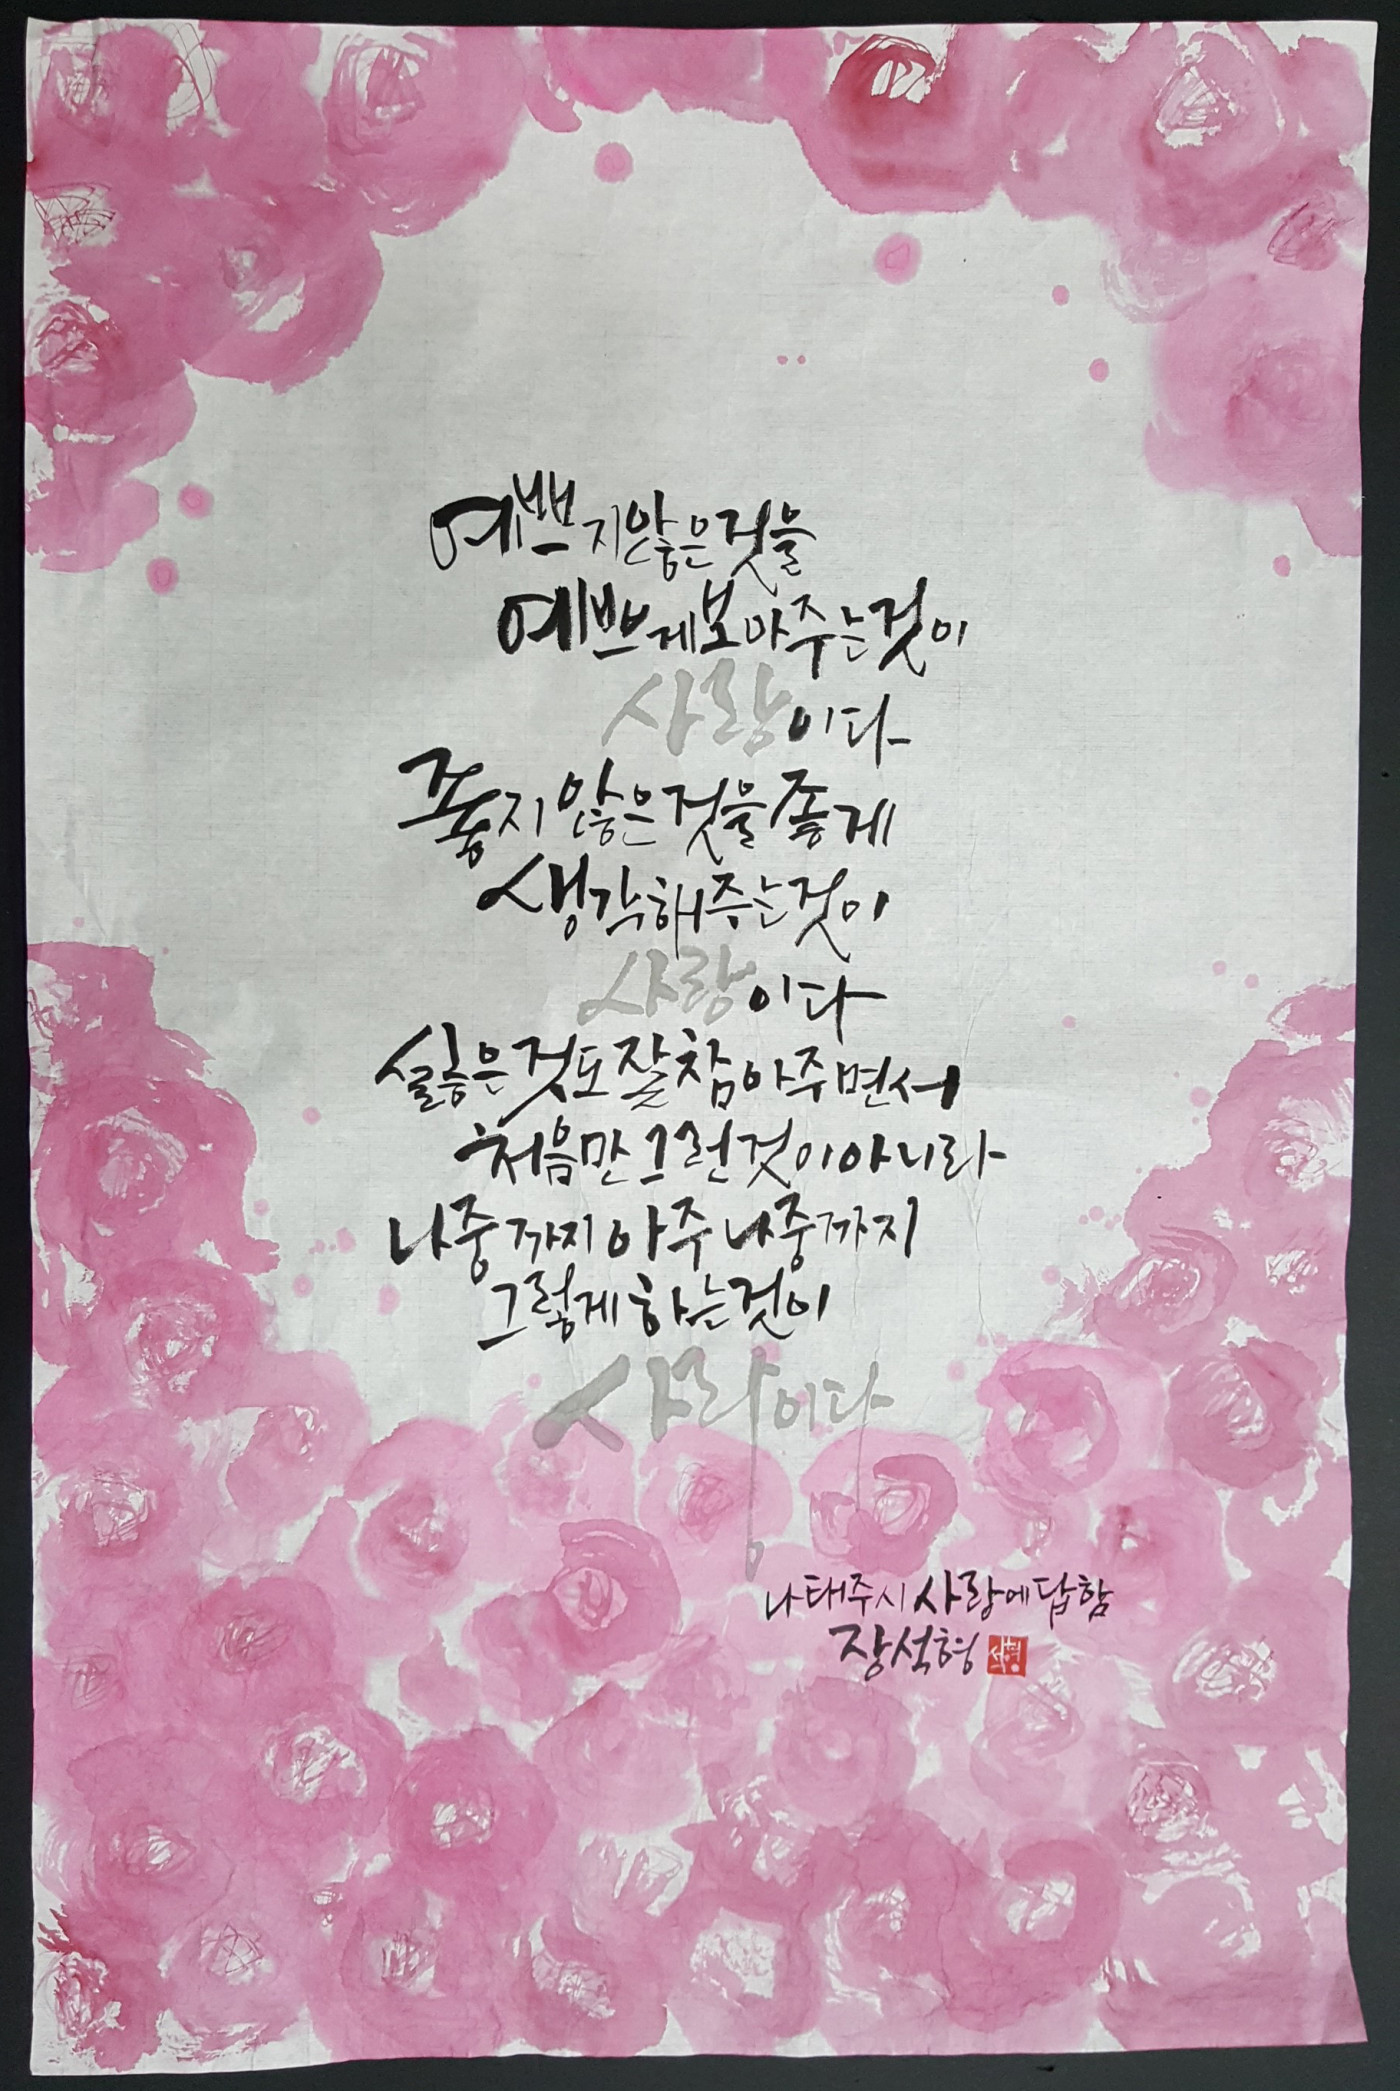 예쁘지않은것을
예쁘게보아주는것이
사랑이다
좋지않은것을좋게
생각해주는것이
사랑이다
싫은것도잘참아주면서
처음만그런것이아니라
나중까지아주나중까지
그렇게하는것이
사랑이다
나태주시사랑에답함
장석형
석형